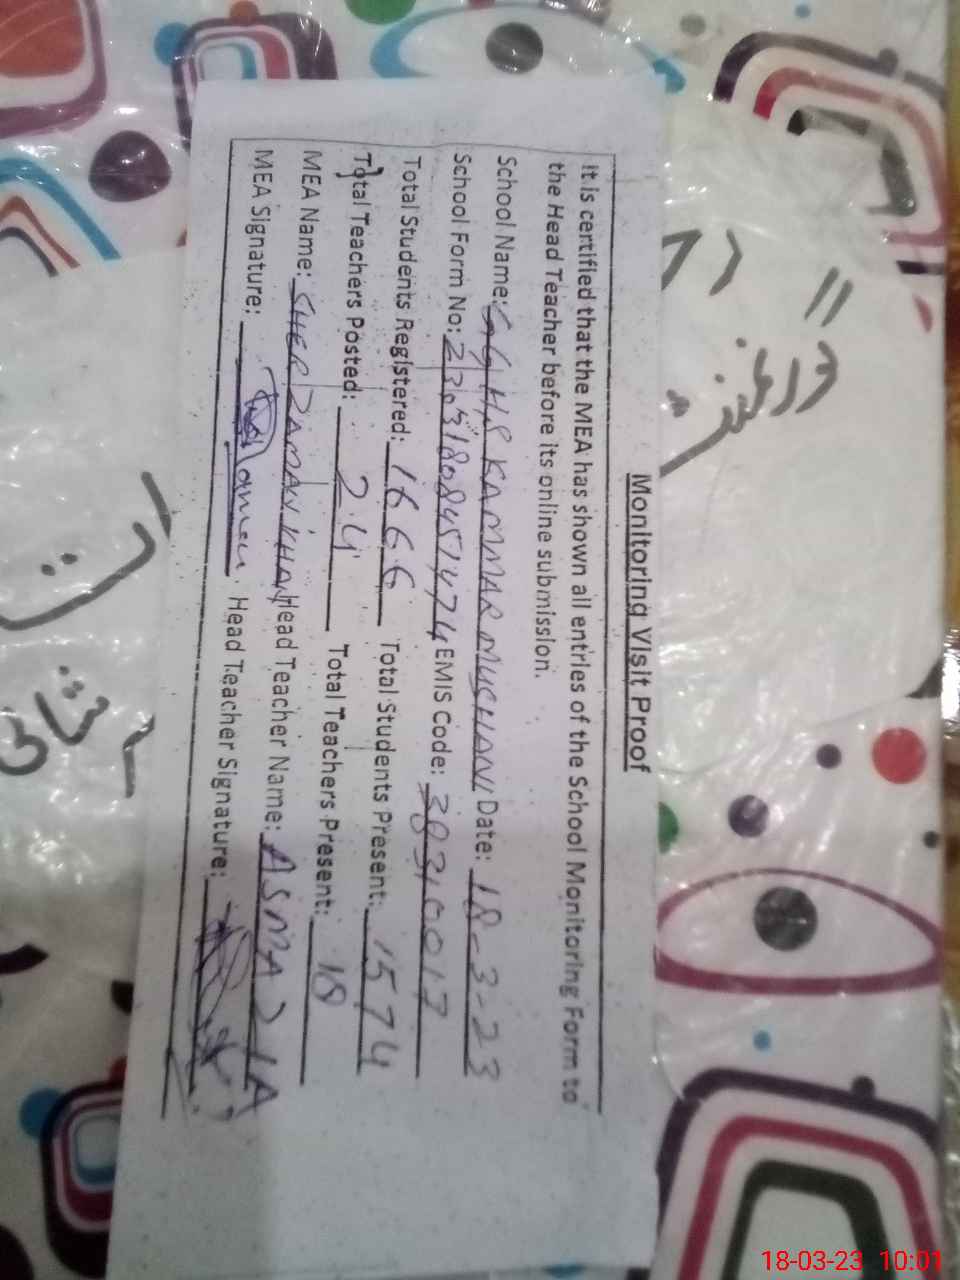 Monitoring Visit Proof
It is certified that the MEA has shown all entries of the School Monitoring Form to
the Head Teacher before its online submission.
School Name: G.G.H.S KAMMAR MUSHANI Date: 18-3-23
School Form No: EMIS Code: 38310017
Total Students Registered: 1666 Total Students Present: 1574
Total Teachers Posted: 24 Total Teachers Present: 18
MEA Name: SHER ZAMAN KHAN Head Teacher Name: ASMA
MEA Signature: Head Teacher Signature:
18-03-23 10:01